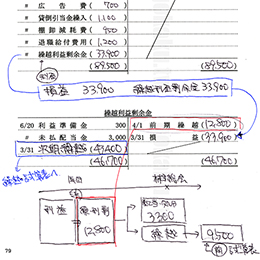 〃 広告費 (700)
〃 貸倒引当金繰入 (1,100)
〃 棚卸減耗費 (900)
〃 退職給付費用 (1,200)
〃 繰越利益剰余金 (33,900)
(89,500) (89,500)
損益 33,900 繰越利益剰余金 33,900
繰越利益剰余金
6/20 利益準備金 300 4/1 前期繰越 (12,800)
〃 未払配当金 3,000 3/31 損益 (33,900)
3/31 次期繰越 (43,400)
(46,700) (46,700)
利益
12,800
3300
繰越 9,500
79